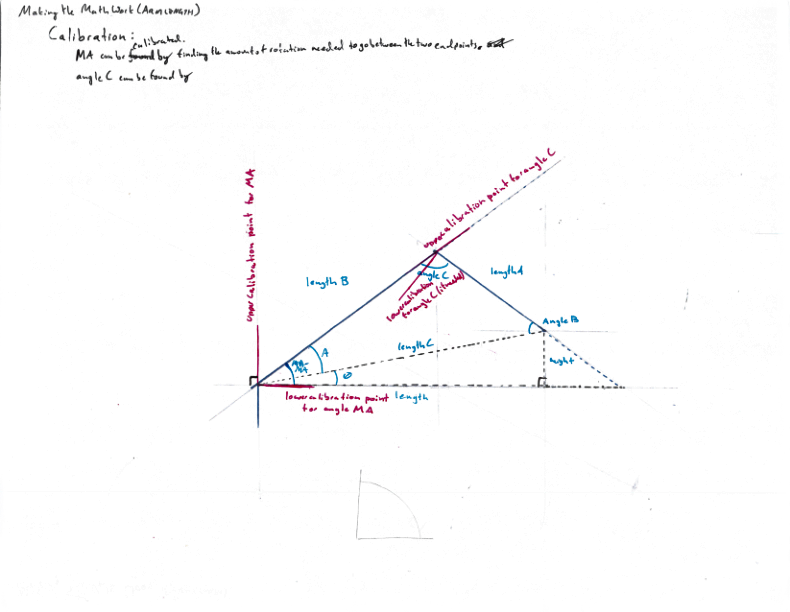 Making the Math Work (ARM LENGTH)
Calibration:
calibrated.
MA can be found by finding the amount of rotation needed to go between the two endpoints.
angle C can be found by
upper calibration point for angle C
upper calibration point for MA
length B
angle C
length A
lower calibration
for angle C (if needed)
Angle B
length C
A
MA
θ
height
lower calibration point
for angle MA
length